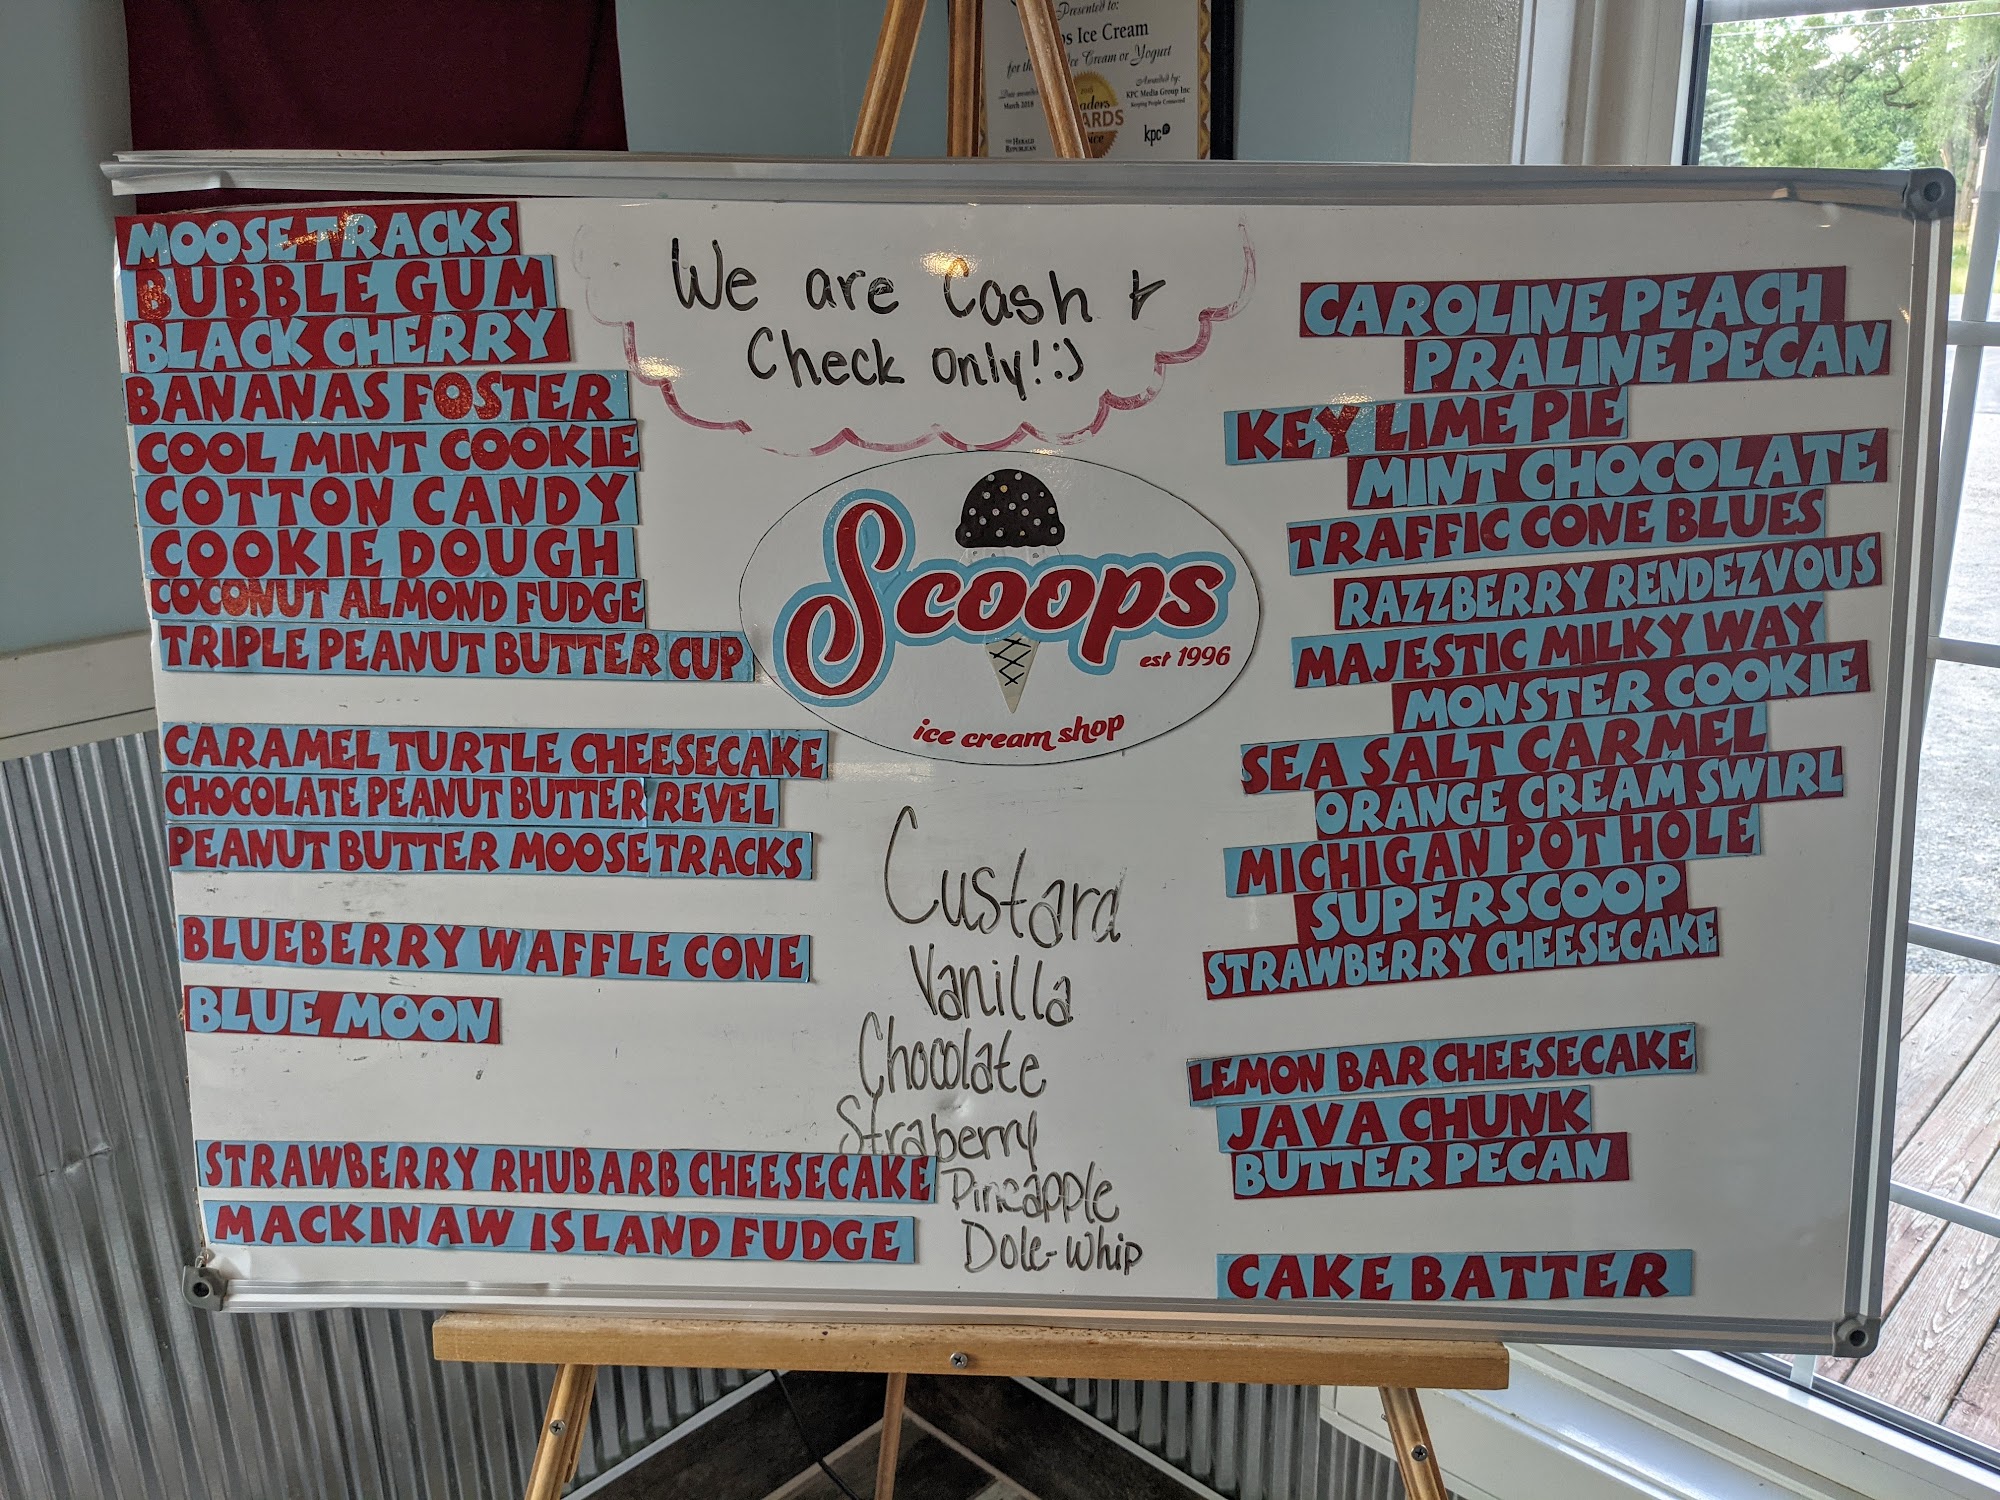 Presented to:
Ice Cream
Ice Cream or Yogurt
March 2018
Awarded by:
KPC Media Group Inc
Keeping People Connected
THE HERALD
REPUBLICAN
kpc
MOOSE TRACKS
BUBBLE GUM
BLACK CHERRY
BANANAS FOSTER
COOL MINT COOKIE
COTTON CANDY
COOKIE DOUGH
COCONUT ALMOND FUDGE
TRIPLE PEANUT BUTTER CUP
CARAMEL TURTLE CHEESECAKE
CHOCOLATE PEANUT BUTTER REVEL
PEANUT BUTTER MOOSE TRACKS
BLUEBERRY WAFFLE CONE
BLUE MOON
STRAWBERRY RHUBARB CHEESECAKE
MACKINAW ISLAND FUDGE
We are Cash +
Check only! :)
Scoops
est 1996
ice cream shop
Custard
Vanilla
Chocolate
Straberry
Pineapple
Dole-Whip
CAROLINE PEACH
PRALINE PECAN
KEY LIME PIE
MINT CHOCOLATE
TRAFFIC CONE BLUES
RAZZBERRY RENDEZVOUS
MAJESTIC MILKY WAY
MONSTER COOKIE
SEA SALT CARMEL
ORANGE CREAM SWIRL
MICHIGAN POT HOLE
SUPERSCOOP
STRAWBERRY CHEESECAKE
LEMON BAR CHEESECAKE
JAVA CHUNK
BUTTER PECAN
CAKE BATTER